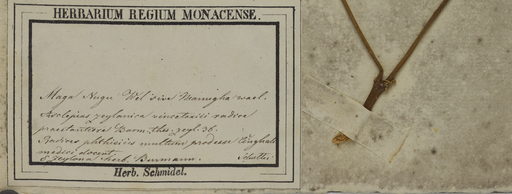 HERBARIUM REGIUM MONACENSE.
Maga Nugu Wel sive Namugha wael.
Asclepias zeylanica vincetoxici radice
praestantiore Burm. thes. zeyl. 36.
Radices phthisicis multum prodesse
medici docent.
e Zeylona herb. Burmann.
Herb. Schmidel.